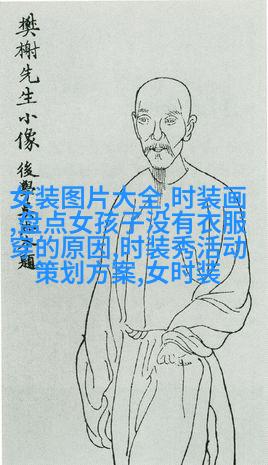 樊榭先生小像
後學
題
女装图片大全,时装画
,盘点女孩子没有衣服
穿的原因,时装秀活动
策划方案,女时装